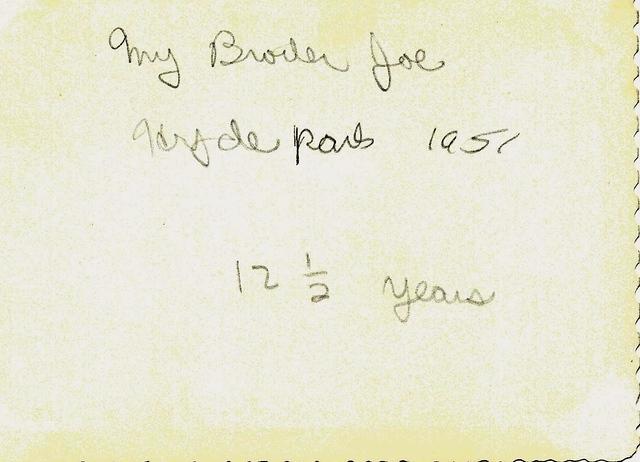 My Broder Joe
Hyde park 1951
12 1/2 years